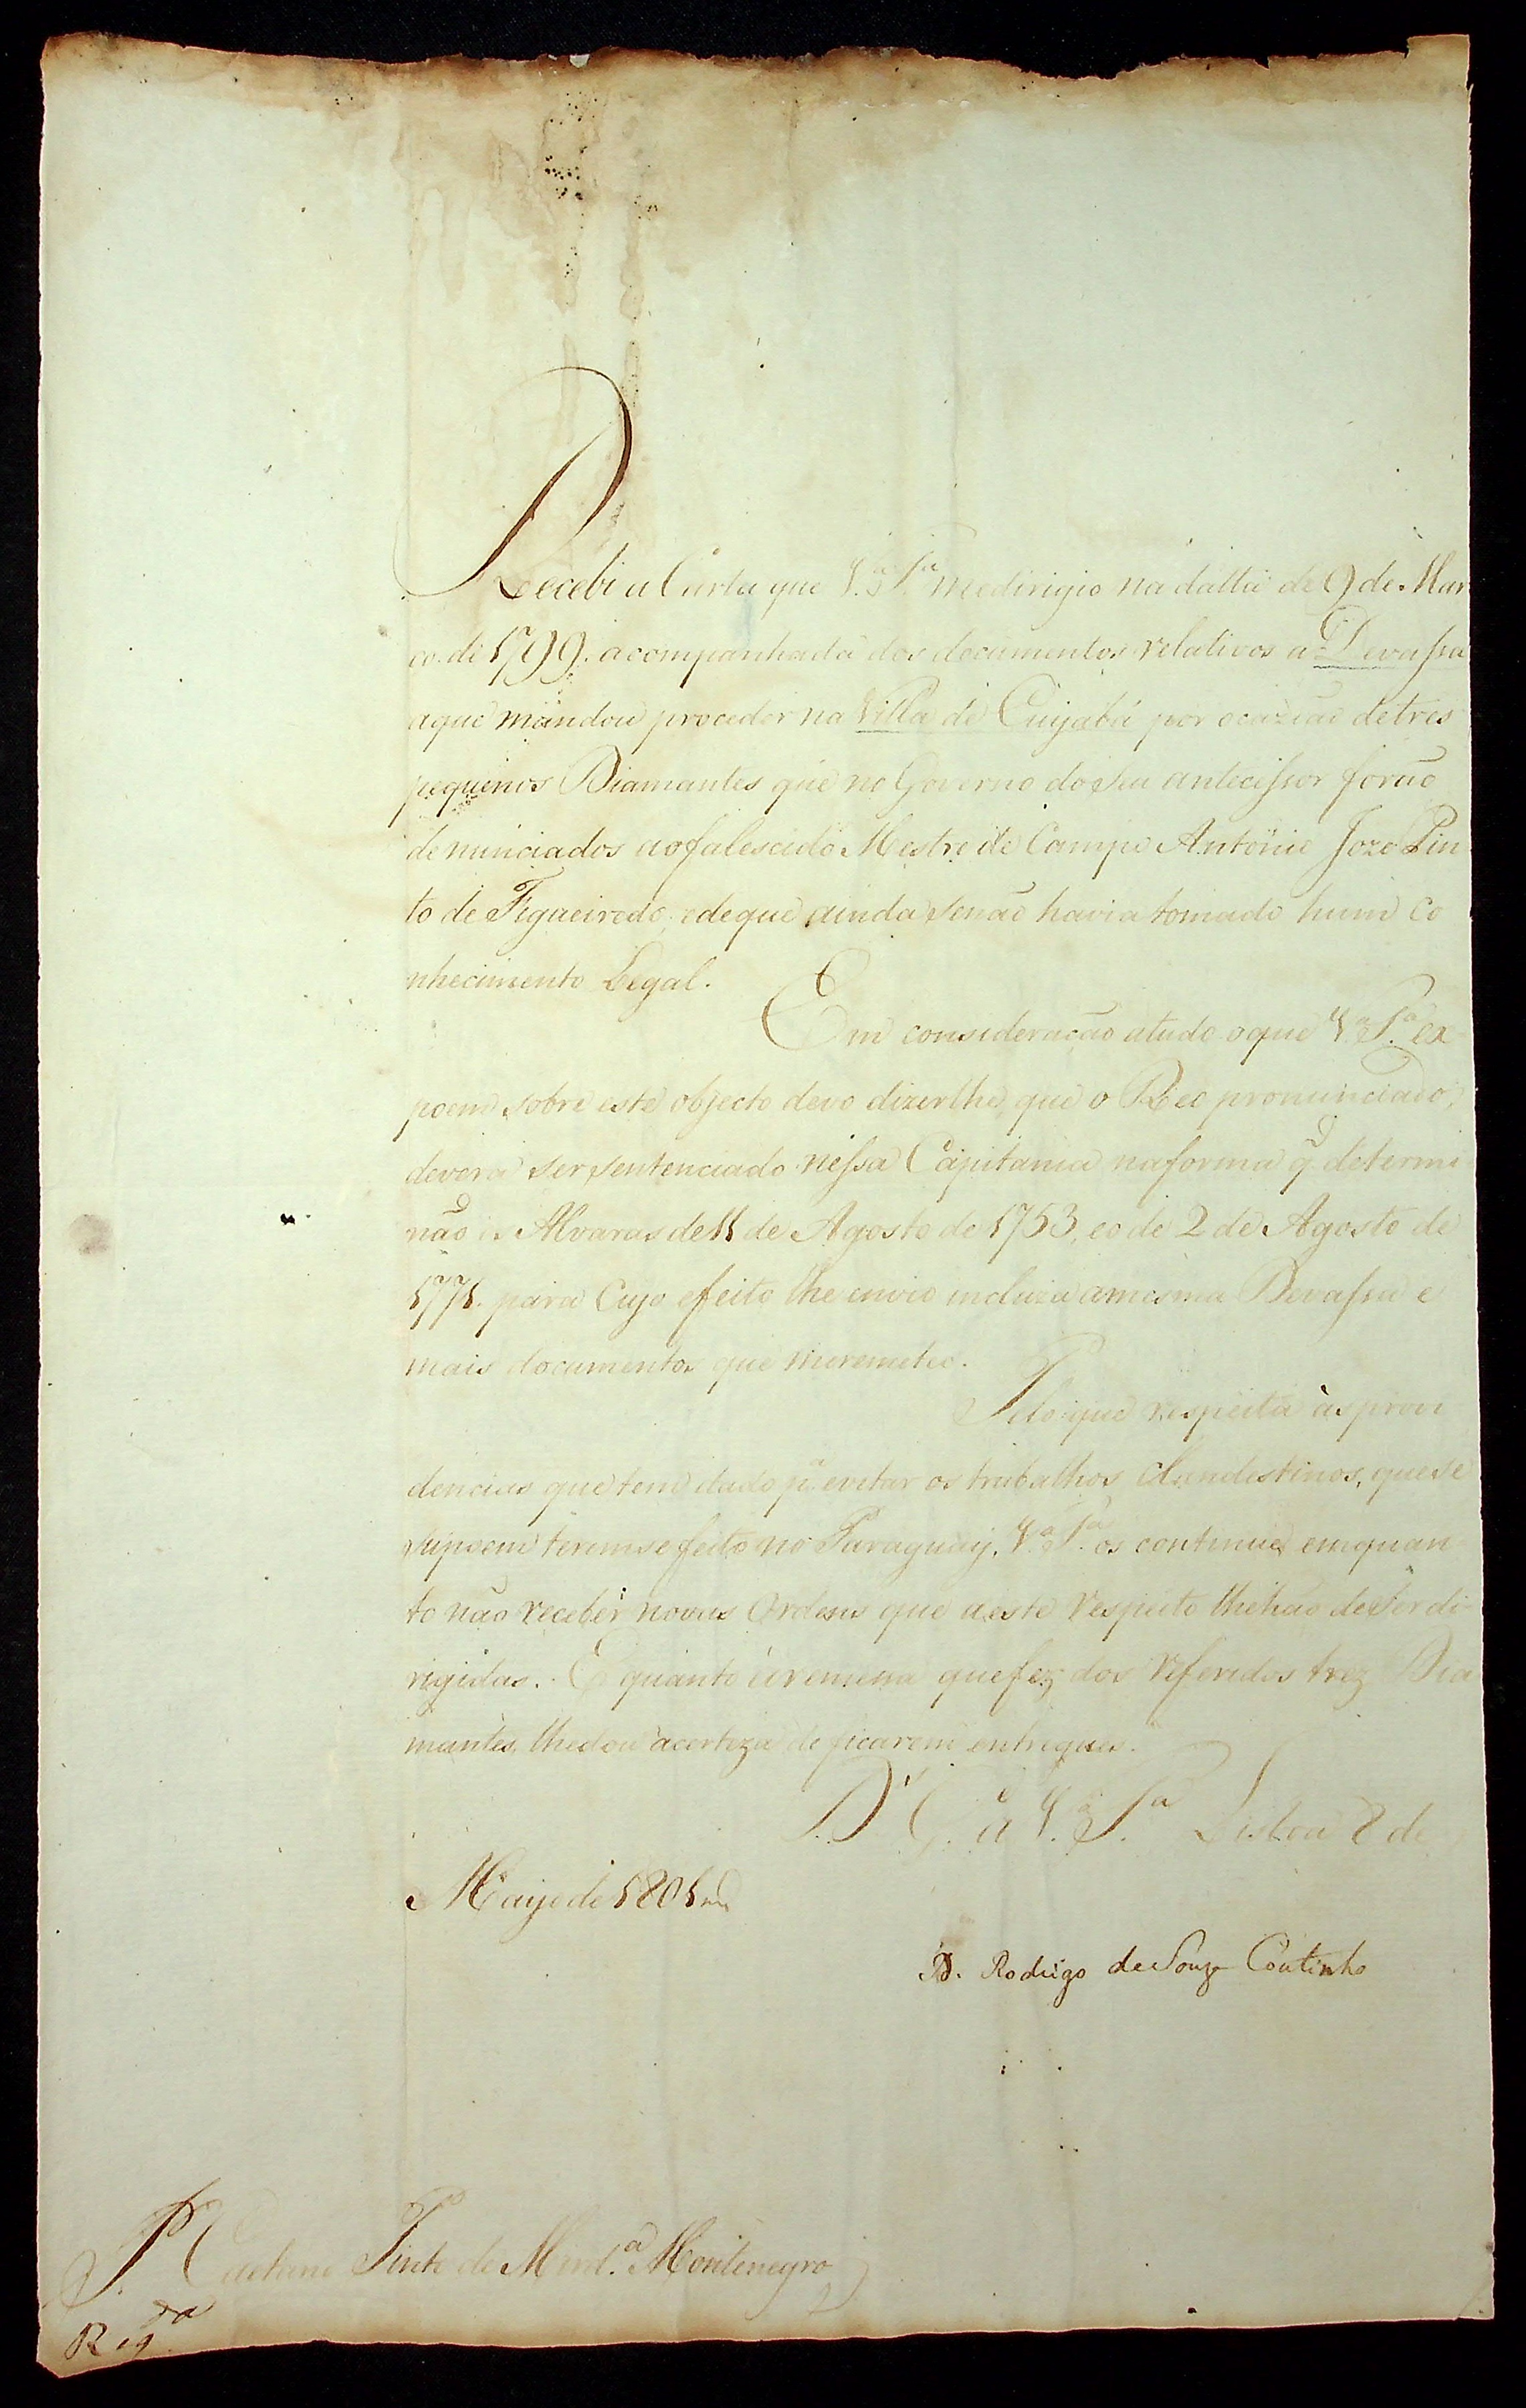 Recebi a Carta que V.ª S.ª me dirigio na datta de 9 de Mar
ço de 1799. acompanhada dos documentos relativos a Devassa
aque mandou proceder na Villa de Cuyabá por ocazião de tres
pequenos Diamantes que no Governo do seu antecessor forão
denunciados ao falescido Mestre de Campo Antonio Jozé Pin
to de Figueiredo, e deque ainda senão havia tomado hum Co
nhecimento Legal.
Em consideração atudo oque V.ª S.ª ex
poem sobre este objecto devo dizerlhe, que o Reo pronunciado,
deverá ser sentenciado nessa Capitania na forma q̃ determi
não os Alvaras de 11 de Agosto de 1753, e o de 2 de Agosto de
1771. para Cujo efeito lhe envio incluza amesma Devassa e
mais documentos que meremeteo.
Pelo que respeita ás provi
dencias que tem dado p.ª evitar os trabalhos Clandestinos, que se
supoem teremse feito no Paraguay, V.ª S.ª os continue emquan
to não receber novas Ordens que aeste respeito lhe hão de ser di-
rigidas. E quanto á remessa que fez dos referidos trez Dia
mantes, lhedou acerteza de ficarem entregues.
D.s G.e a V.ª S.ª Lisboa 8 de
Mayo de 1801
D. Rodrigo de Souza Coutinho
S.r Caetano Pinto de Mird.ª Montenegro
Reg.da